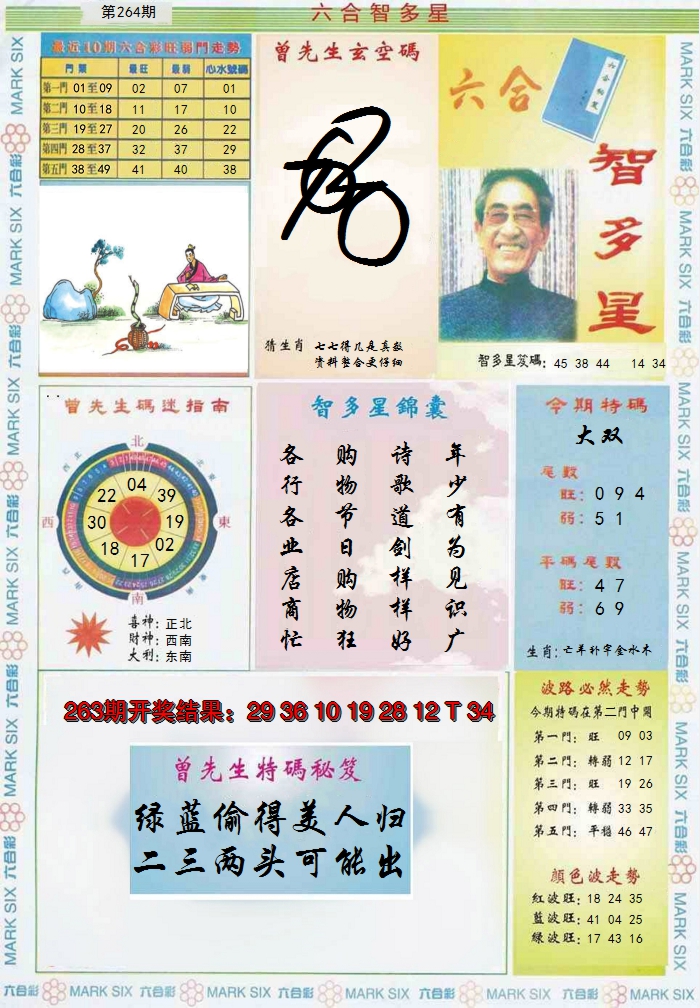 第264期
六合智多星
最近10期六合彩旺弱門走勢
門類 最旺 最弱 心水號碼
第一門 01至09 02 07 01
第二門 10至18 11 17 10
第三門 19至27 20 26 22
第四門 28至37 32 37 29
第五門 38至49 41 40 38
曾先生玄空碼
猜生肖 七七得几是真数
资料整合更仔细
六合
智多星
智多星笈碼: 45 38 44 14 34
曾先生碼迷指南
北
西
東
南
04
39
19
02
17
18
30
22
喜神: 正北
財神: 西南
大利: 东南
智多星錦囊
年少有为见识广
诗歌道剑样样好
购物节日购物狂
各行各业店商忙
今期特碼
大双
尾數
旺: 0 9 4
弱: 5 1
平碼尾數
旺: 4 7
弱: 6 9
生肖: 亡羊补牢金水木
263期开奖结果: 29 36 10 19 28 12 T 34
曾先生特碼秘笈
绿蓝偷得美人归
二三两头可能出
波路必然走勢
今期特碼在第二門中開
第一門: 旺 09 03
第二門: 轉弱 12 17
第三門: 旺 19 26
第四門: 轉弱 33 35
第五門: 平穩 46 47
顏色波走勢
紅波旺: 18 24 35
藍波旺: 41 04 25
綠波旺: 17 43 16
MARK SIX 六合彩